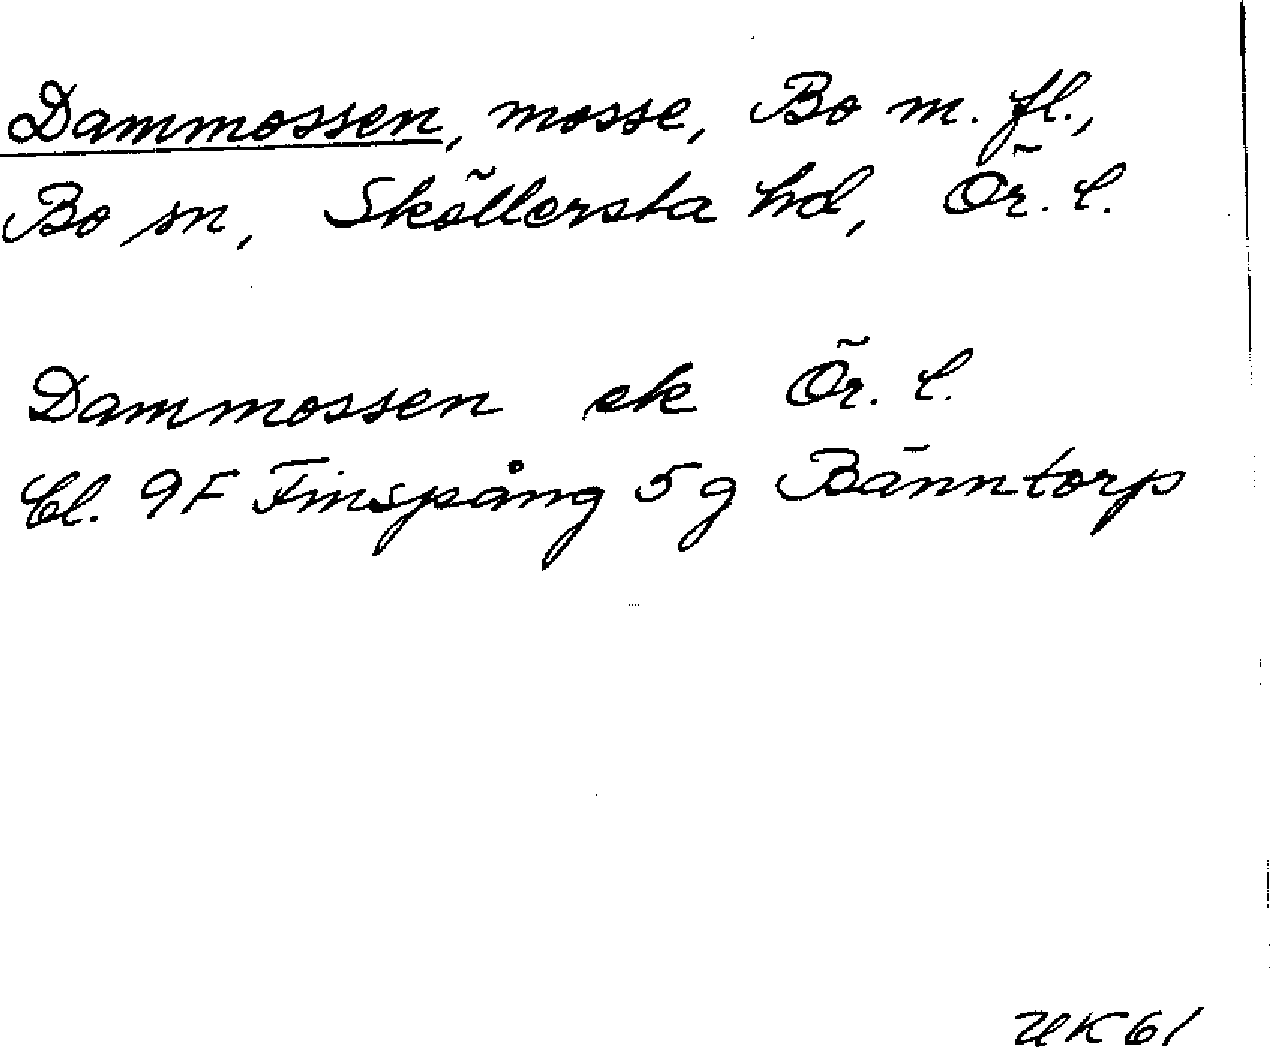 Dammossen, mosse, Bo m. fl.,
Bo sn, Sköllersta hd, Ör. l.
Dammossen ek Ör. l.
Bl. 9F Finspång 5g Bänntorp
UK61